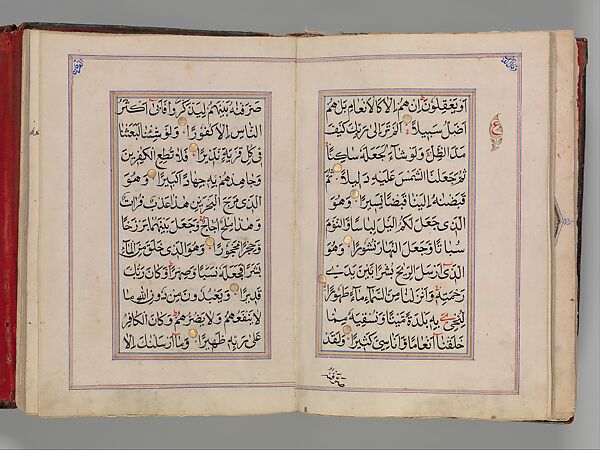 اَوْ يَعْقِلُوْنَ اِنْ هُمْ اِلَّا كَالْاَنْعَامِ بَلْ هُمْ
اَضَلُّ سَبِيْلًا اَلَمْ تَرَ اِلٰى رَبِّكَ كَيْفَ
مَدَّ الظِّلَّ وَلَوْ شَآءَ لَجَعَلَهٗ سَاكِنًا
ثُمَّ جَعَلْنَا الشَّمْسَ عَلَيْهِ دَلِيْلًا ثُمَّ
قَبَضْنٰهُ اِلَيْنَا قَبْضًا يَّسِيْرًا وَهُوَ
الَّذِيْ جَعَلَ لَكُمُ الَّيْلَ لِبَاسًا وَّالنَّوْمَ
سُبَاتًا وَّجَعَلَ النَّهَارَ نُشُوْرًا وَهُوَ
الَّذِيْٓ اَرْسَلَ الرِّيٰحَ بُشْرًا بَيْنَ يَدَيْ
رَحْمَتِهٖ وَاَنْزَلْنَا مِنَ السَّمَآءِ مَآءً طَهُوْرًا
لِنُحْيِيَ بِهٖ بَلْدَةً مَّيْتًا وَّنُسْقِيَهٗ مِمَّا
خَلَقْنَآ اَنْعَامًا وَّاَنَاسِيَّ كَثِيْرًا وَلَقَدْ
صَرَّفْنٰهُ
ع
صَرَّفْنٰهُ بَيْنَهُمْ لِيَذَّكَّرُوْا فَاَبٰٓى اَكْثَرُ
النَّاسِ اِلَّا كُفُوْرًا وَلَوْ شِئْنَا لَبَعَثْنَا
فِيْ كُلِّ قَرْيَةٍ نَّذِيْرًا فَلَا تُطِعِ الْكٰفِرِيْنَ
وَجَاهِدْهُمْ بِهٖ جِهَادًا كَبِيْرًا وَهُوَ
الَّذِيْ مَرَجَ الْبَحْرَيْنِ هٰذَا عَذْبٌ فُرَاتٌ
وَّهٰذَا مِلْحٌ اُجَاجٌ وَجَعَلَ بَيْنَهُمَا بَرْزَخًا
وَّحِجْرًا مَّحْجُوْرًا وَهُوَ الَّذِيْ خَلَقَ مِنَ الْمَآءِ
بَشَرًا فَجَعَلَهٗ نَسَبًا وَّصِهْرًا وَكَانَ رَبُّكَ
قَدِيْرًا وَيَعْبُدُوْنَ مِنْ دُوْنِ اللّٰهِ مَا
لَا يَنْفَعُهُمْ وَلَا يَضُرُّهُمْ وَكَانَ الْكَافِرُ
عَلٰى رَبِّهٖ ظَهِيْرًا وَمَآ اَرْسَلْنٰكَ اِلَّا